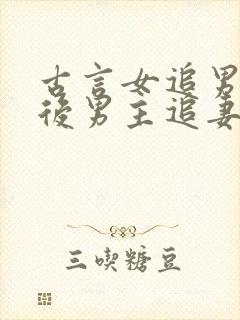 古言女追男
後男主追妻
三喫糖豆